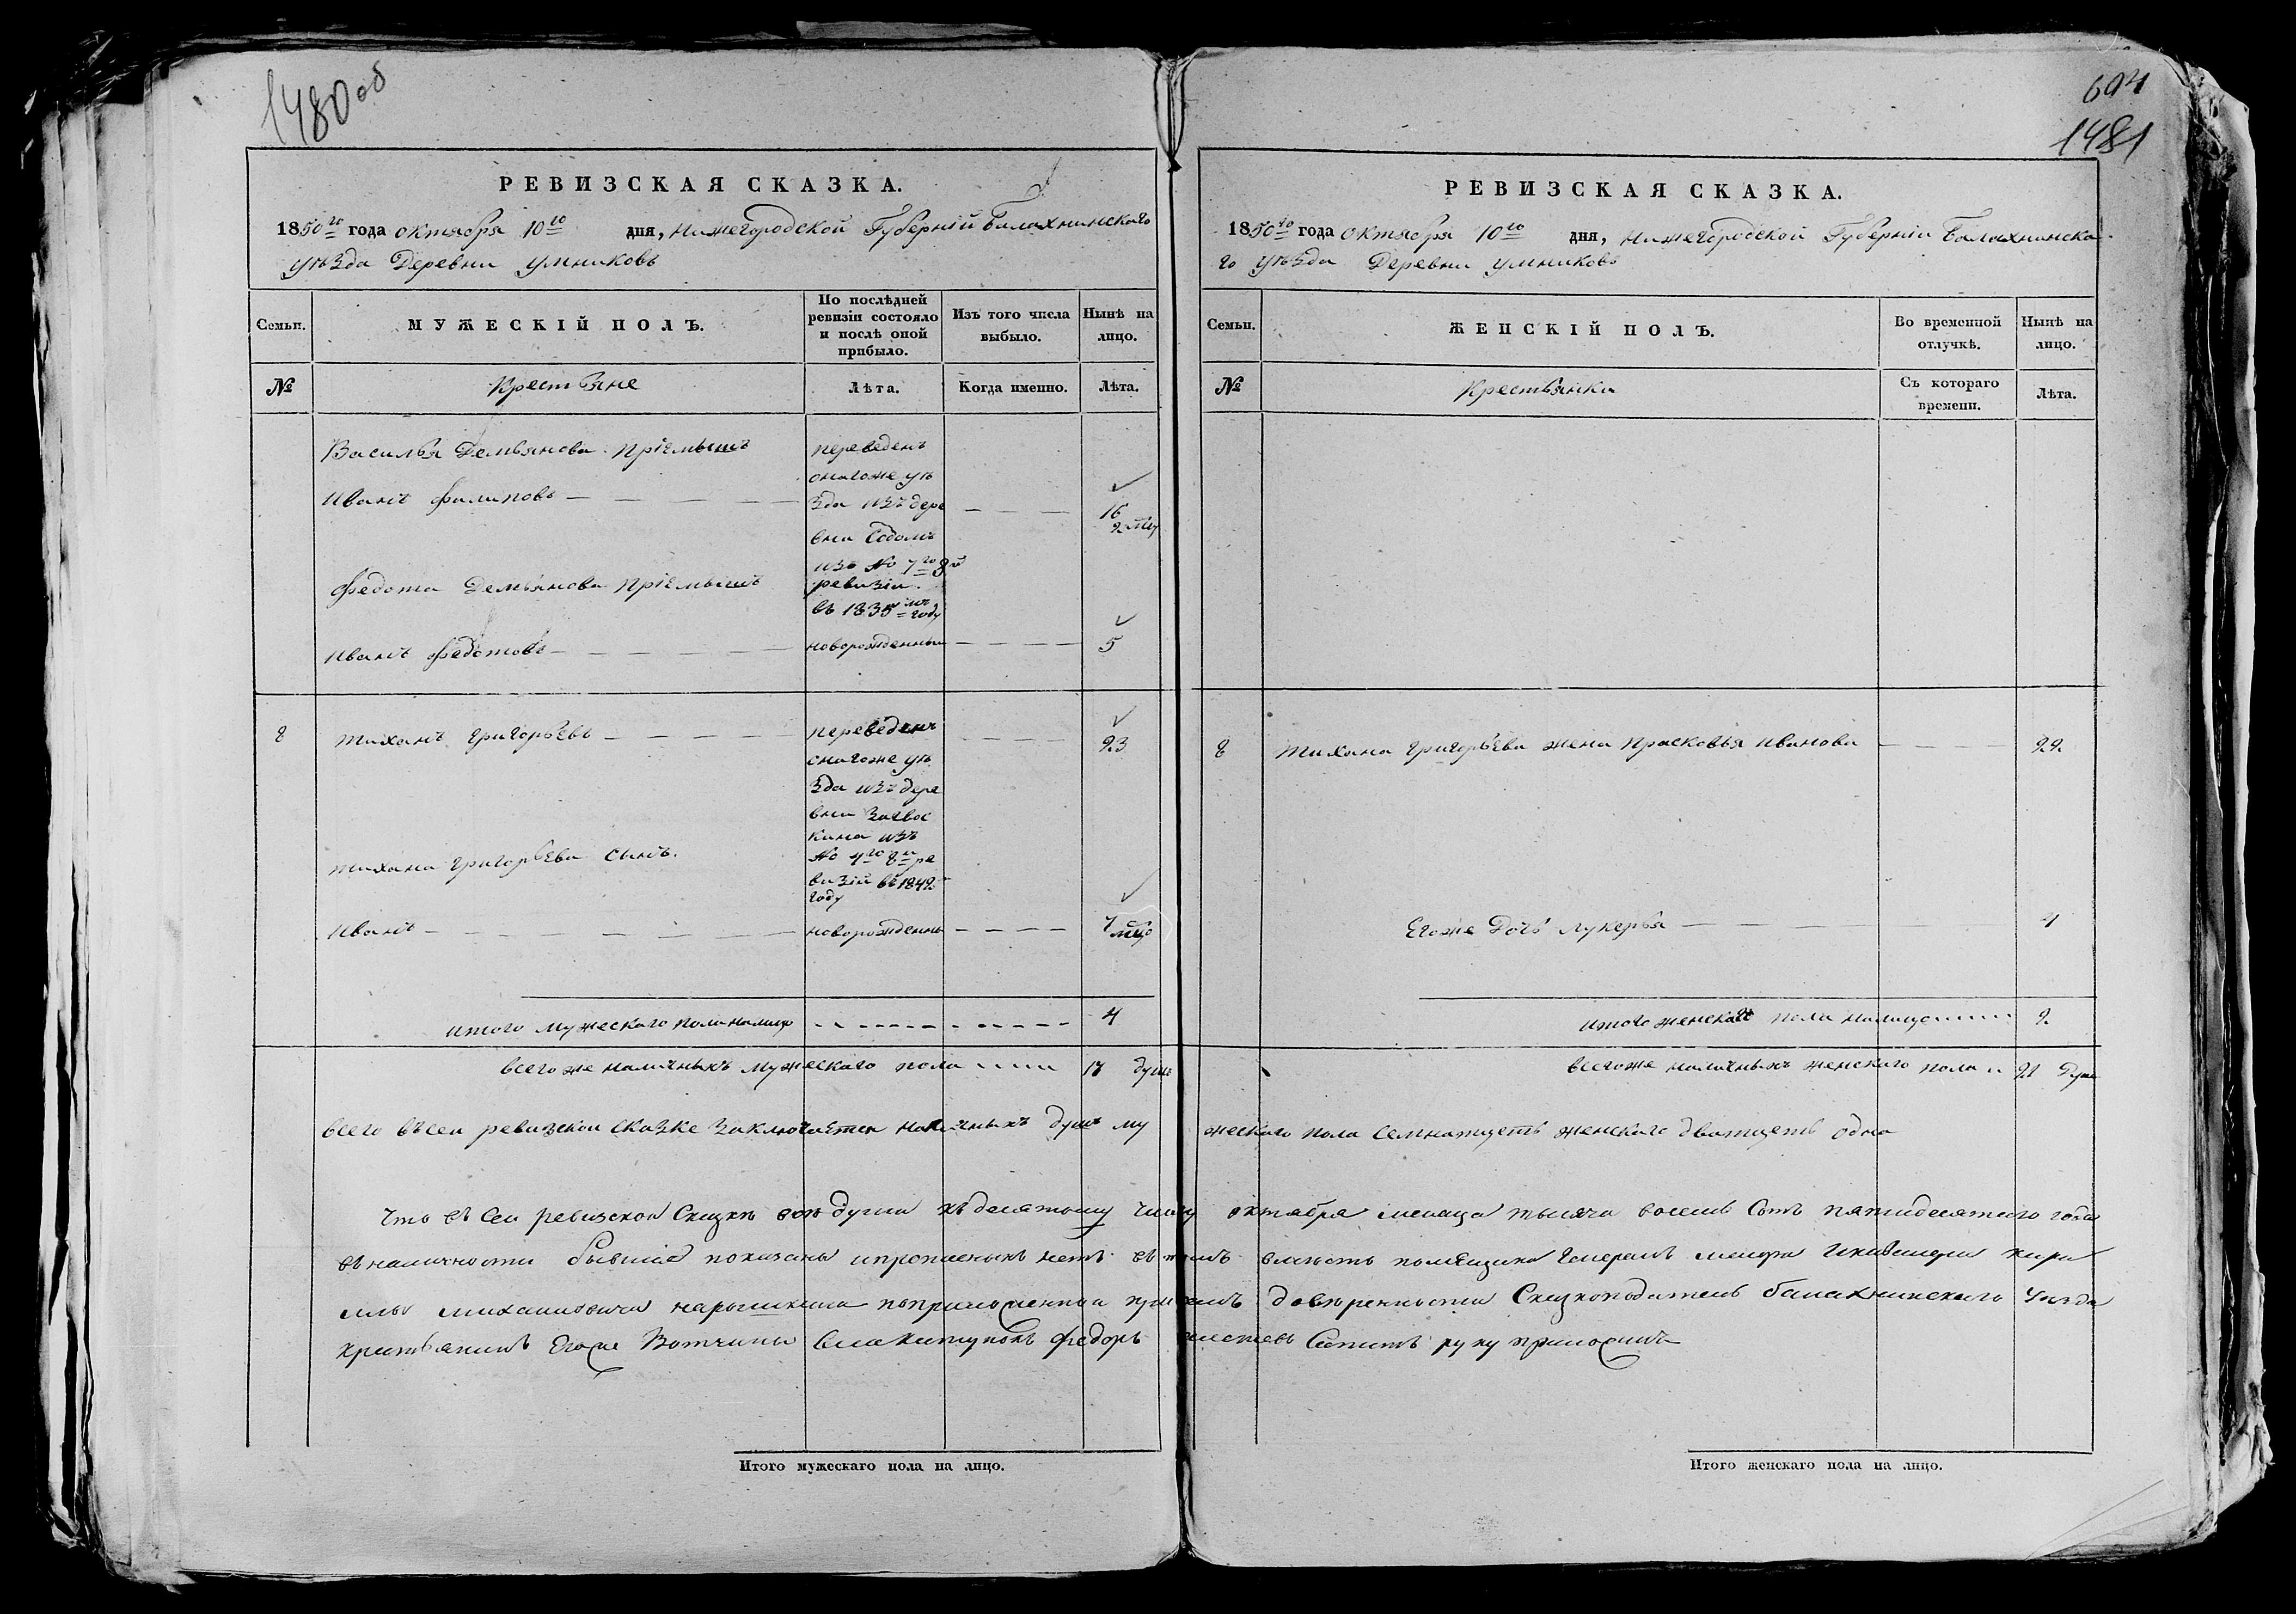 1480 об
РЕВИЗСКАЯ СКАЗКА.
1850го года октября 10го дня, Нижегородской Губерніи Балахнинскаго
уѣзда Деревни Умниковъ
Семьи.
МУЖЕСКІЙ ПОЛЪ.
По послѣдней ревизіи состояло и послѣ оной прибыло.
Изъ того числа выбыло.
Нынѣ на лицо.
№
Крестьяне
Лѣта.
Когда именно.
Лѣта.
Василья Демьянова Пріемышъ
переведенъ
снагоже уѣ
Иванъ Филиповъ
зда изъ дере
16
вни Содомъ
изъ № 7го 8й
Федота Демьянова Пріемышъ
ревизіи
въ 1835мъ году
Иванъ Федотовъ
новорожденный
5
8
Тиханъ Григорьевъ
переведенъ
23
снагоже уѣ
зда изъ дере
вни
кина изъ
Тихана Григорьева сынъ.
№ 4го 8й ре
визіи въ 1842
году
Иванъ
новорожденны
итого мужескаго пола налицо
4
всего же наличныхъ мужескаго пола
17 душъ
694
1481
РЕВИЗСКАЯ СКАЗКА.
1850го года октября 10го дня, Нижегородской Губерніи Балахнинска
го уѣзда Деревни Умниковъ
Семьи.
ЖЕНСКІЙ ПОЛЪ.
Во временной отлучкѣ.
Нынѣ на лицо.
№
Крестьянки
Съ котораго времени.
Лѣта.
8
Тихана Григорьева жена Прасковья Иванова
22
Егоже Дочь Лукерья
4
итого женскаго пола налицо
2
всегоже наличныхъ женскаго пола 21 Душа
всего въ сеи ревизскои сказке заключается наличныхъ душъ мужескаго пола семнатцеть женскаго дватцеть одна
Что въ сеи ревизскои Сказкѣ всѣ души къ десятому числу октября месяца тысяча восемь Сотъ пятидесятаго года
въ наличности бывшіе показаны и прописныхъ нетъ въ томъ вместо помещика Генералъ Кири
лы Михаиловича Нарышкина доверенности Сказкоподатель балахнинскаго уезда
крестьянинъ Егоже Вотчины Федоръ руку приложилъ
Итого мужескаго пола на лицо.
Итого женскаго пола на лицо.